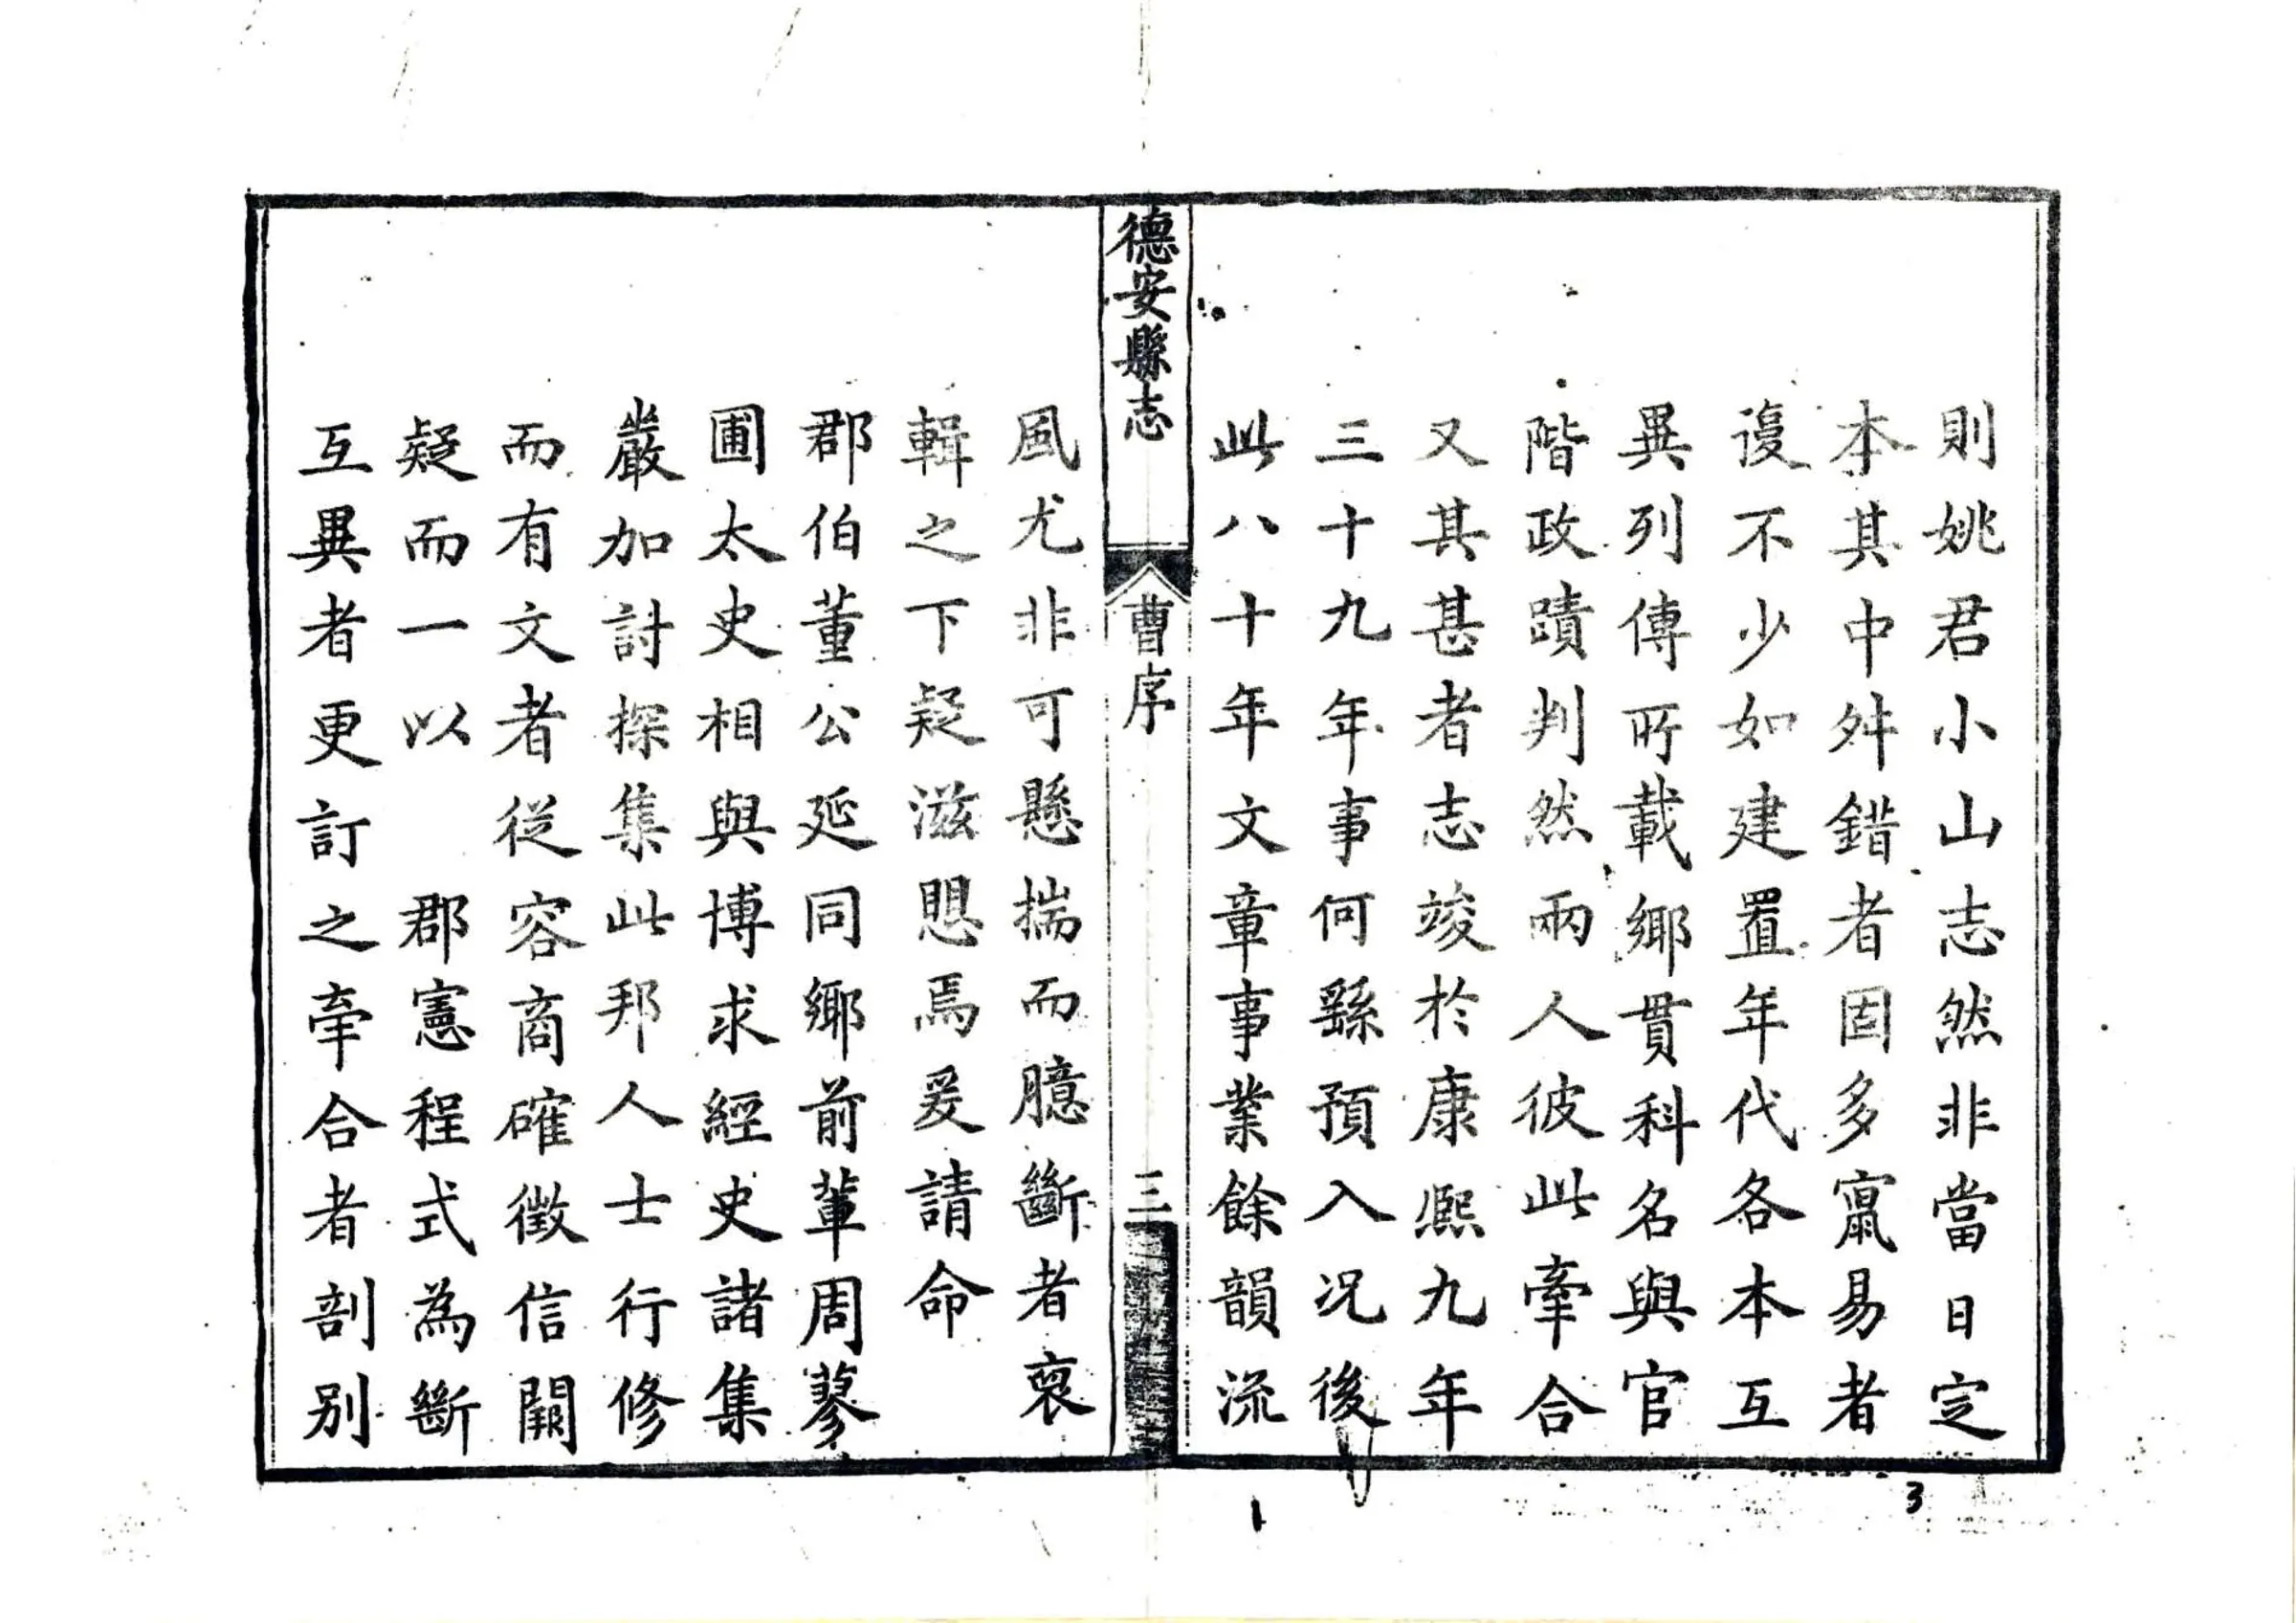 則姚君小山志然非當日定
本其中舛錯者固多寫易者
復不少如建置年代各本互
異列傳所載鄉貫科名與官
階政蹟判然兩人彼此牽合
又其甚者志竣於康熙九年
三十九年事何繇預入况後
此八十年文章事業餘韻流
德安縣志
曹序
三
風尤非可懸揣而臆斷者裒
輯之下疑滋愳焉爰請命
郡伯董公延同鄉前輩周蓼
圃太史相與博求經史諸集
嚴加討探集此邦人士行修
而有文者從容商確徵信闕
疑而一以　郡憲程式為斷
互異者更訂之牽合者剖別
1
3